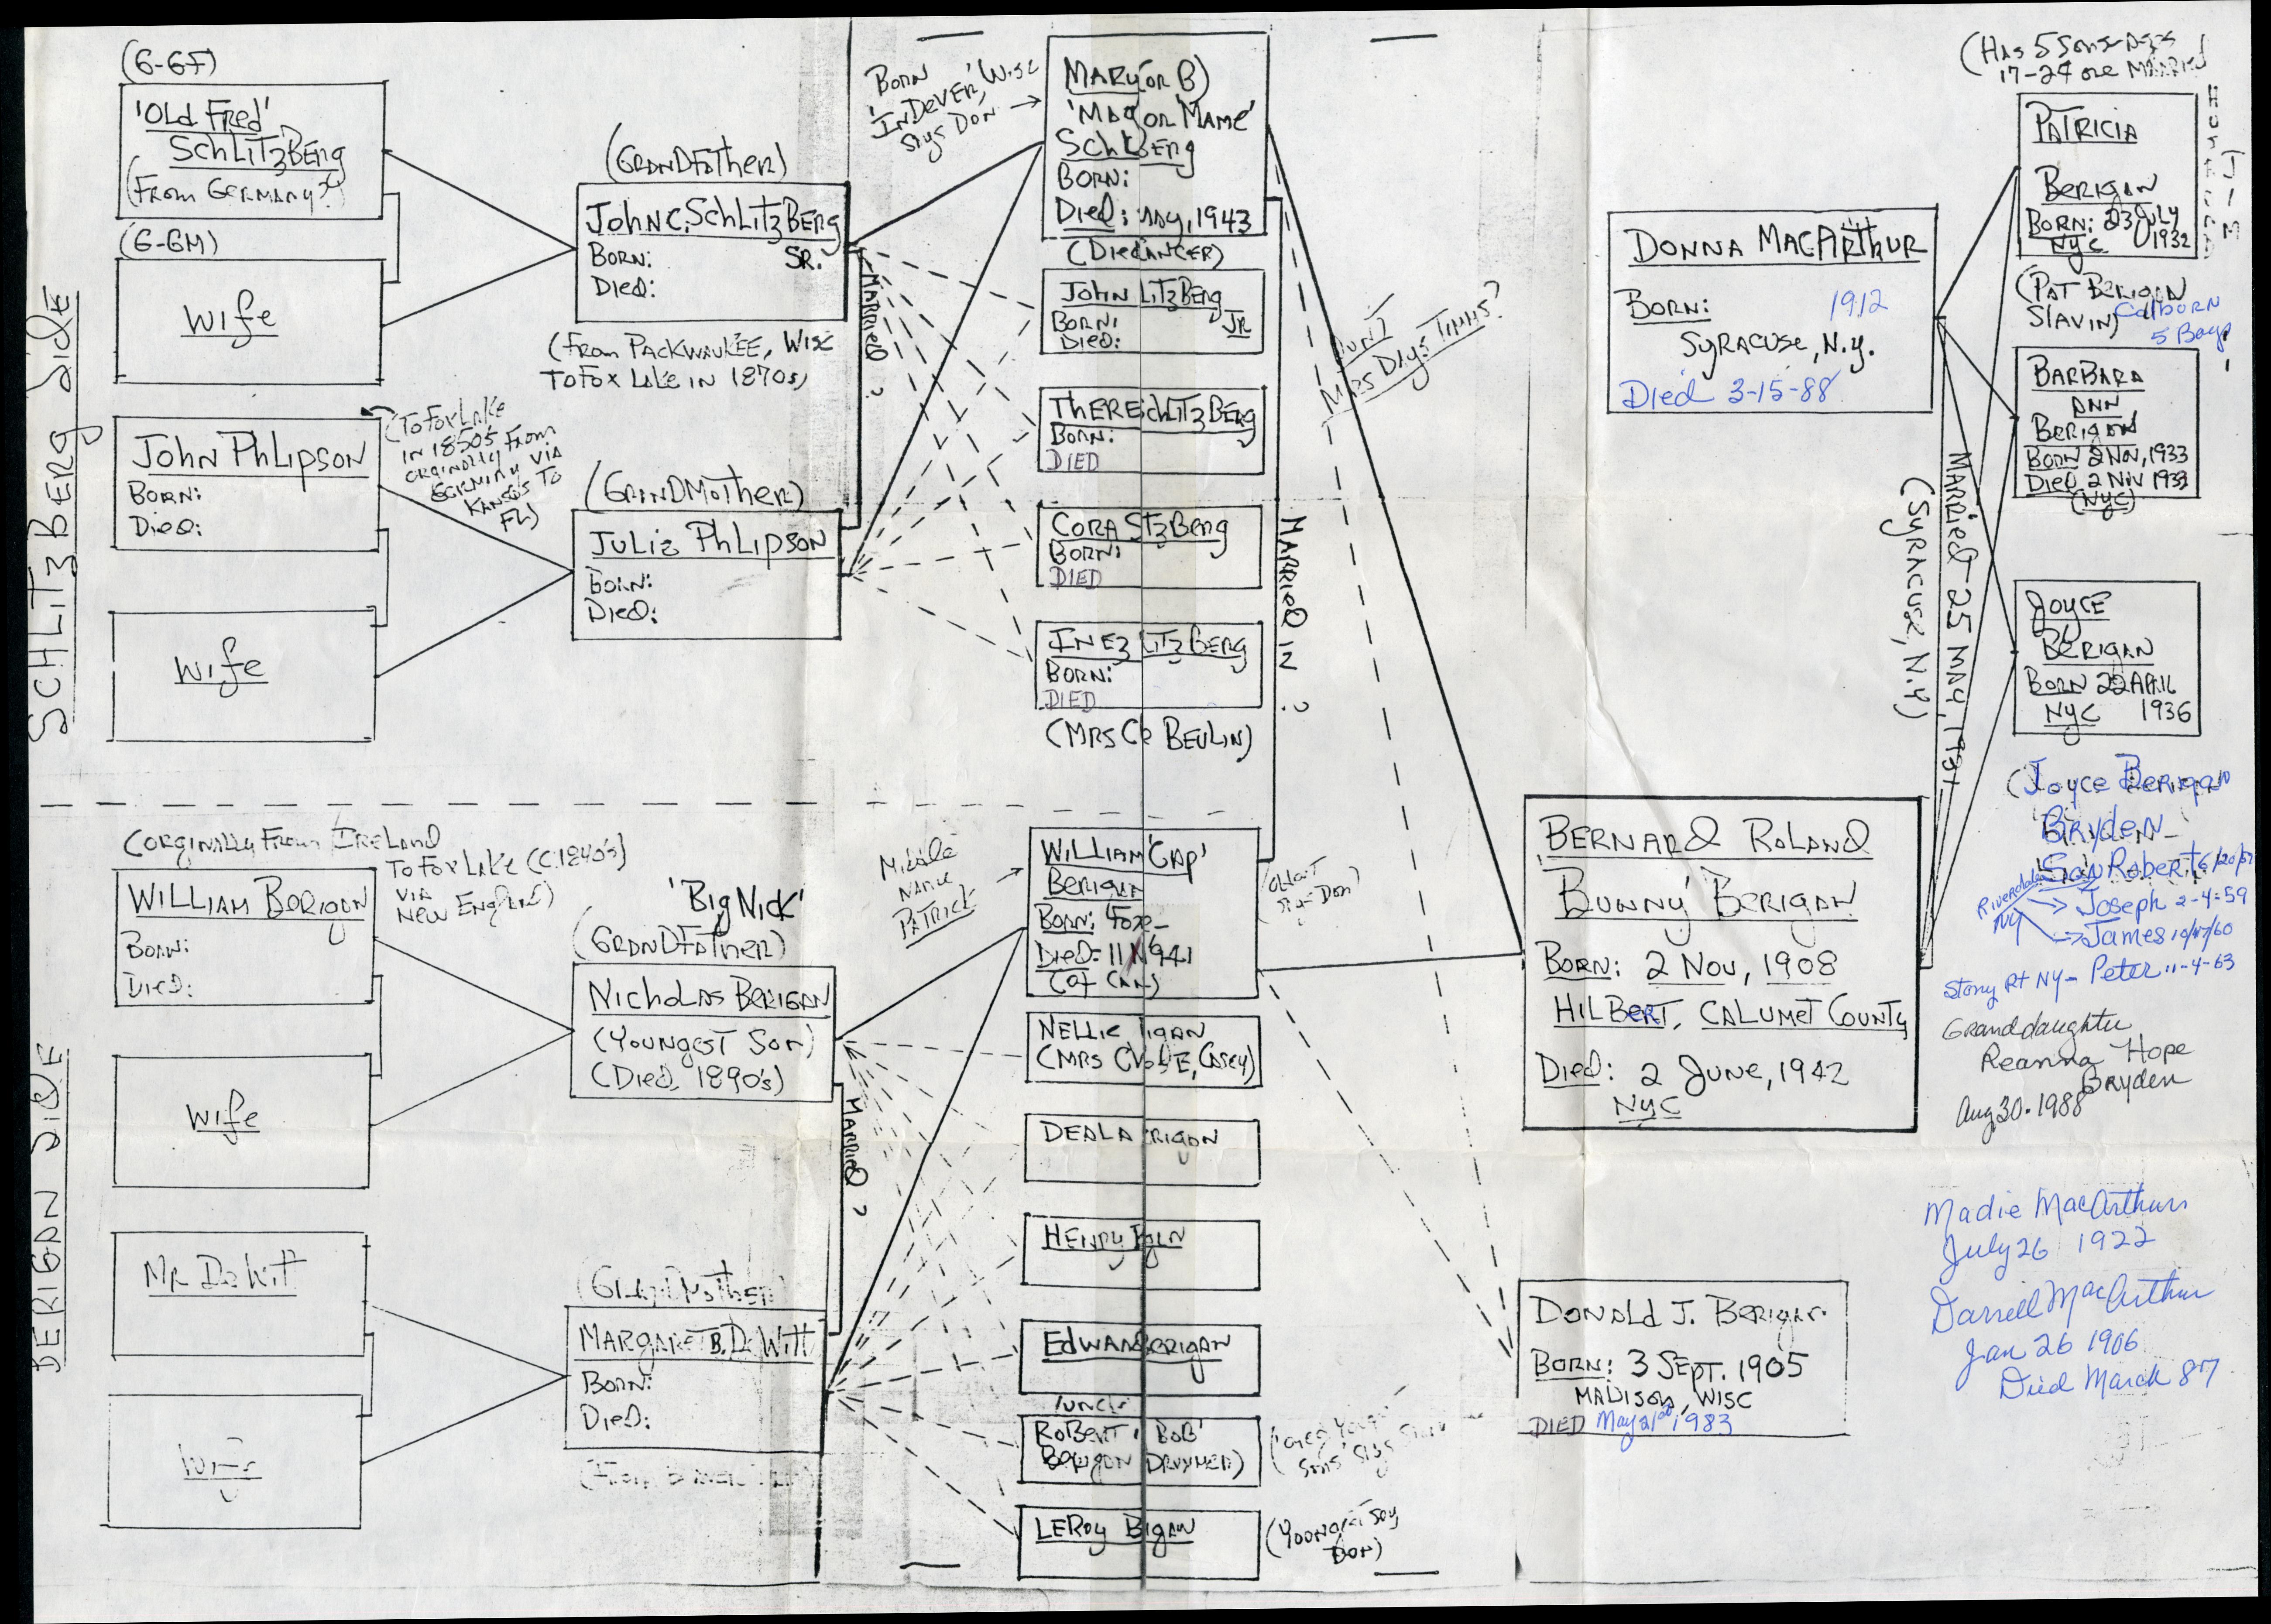 SCHLITZBERG SIDE
(G-GF)
'OLD FRED'
SCHLITZBERG
(FROM GERMANY?)
(G-GM)
WIFE
JOHN PHLIPSON
BORN:
DIED:
(TO FOX LAKE
IN 1850'S FROM
VIA
KANSAS TO
FL)
WIFE
(GRANDFATHER)
JOHN C. SCHLITZBERG
SR.
BORN:
DIED:
(FROM PACKWAUKEE, WISC
TO FOX LAKE IN 1870s)
(GRANDMOTHER)
JULIA PHLIPSON
BORN:
DIED:
MARRIED ?
BORN
'INDEVER,' WISC
SAYS DON
MARY (OR B)
'MAY OR MAME'
BORN:
DIED: MAY, 1943
JOHN LITZBERG
JR
BORN:
DIED:
BORN:
DIED
CORA STZBERG
BORN:
DIED
INEZ LITZBERG
BORN:
DIED
(MRS BEULIN)
MARRIED IN ?
AUNT
MRS DAYS TIMMS?
BERIGAN SIDE
(ORGINALLY FROM IRELAND
TO FOX LAKE (C.1840's)
VIA
NEW ENGLAND)
WILLIAM BERIGAN
BORN:
DIED:
WIFE
MR DeWITT
WIFE
'BIG NICK'
(GRANDFATHER)
NICHOLAS BERIGAN
(YOUNGEST SON)
(DIED 1890's)
MARRIED ?
(GRANDMOTHER)
MARGARET B. DeWITT
BORN:
DIED:
MIDDLE
NAME
PATRICK
WILLIAM 'CAP'
BERIGAN
BORN:
DIED:
NELLIE IGAN
CASEY)
HENRY
EDWARD BERIGAN
ROBERT 'BOB'
BERIGAN DRUMMER)
LEROY BIGAN
DONNA MACARTHUR
BORN: 1912
SYRACUSE, N.Y.
Died 3-15-88
MARRIED 25 MAY, 1931
(SYRACUSE, N.Y)
BERNARD ROLAND
'BUNNY' BERIGAN
BORN: 2 NOV, 1908
HILBERT, CALUMET COUNTY
DIED: 2 JUNE, 1942
NYC
DONALD J. BERIGAN
BORN: 3 SEPT. 1905
MADISON, WISC
DIED May 21st 1983
(HAS 5 SONS AGES
17-24 ONE MARRIED
PATRICIA
BERIGAN
BORN: 23 JULY
NYC 1932
(PAT BERIGAN
SLAVIN)
5 Boys
BARBARA
ANN
BERIGAN
BORN 2 NOV, 1933
DIED 2 NOV 1933
(NYC)
JOYCE
BERIGAN
BORN 22 APRIL
NYC 1936
(Joyce Berigan
BRYDEN
Riverdale
NY
Son Robert 6/20/57
Joseph 2-4-59
James
Stony Pt NY - Peter 11-4-63
Granddaughter
Reanna Hope
Bryden
Aug 30-1988
Madie MacArthur
July 26 1922
Darrell MacArthur
Jan 26 1906
Died March 87